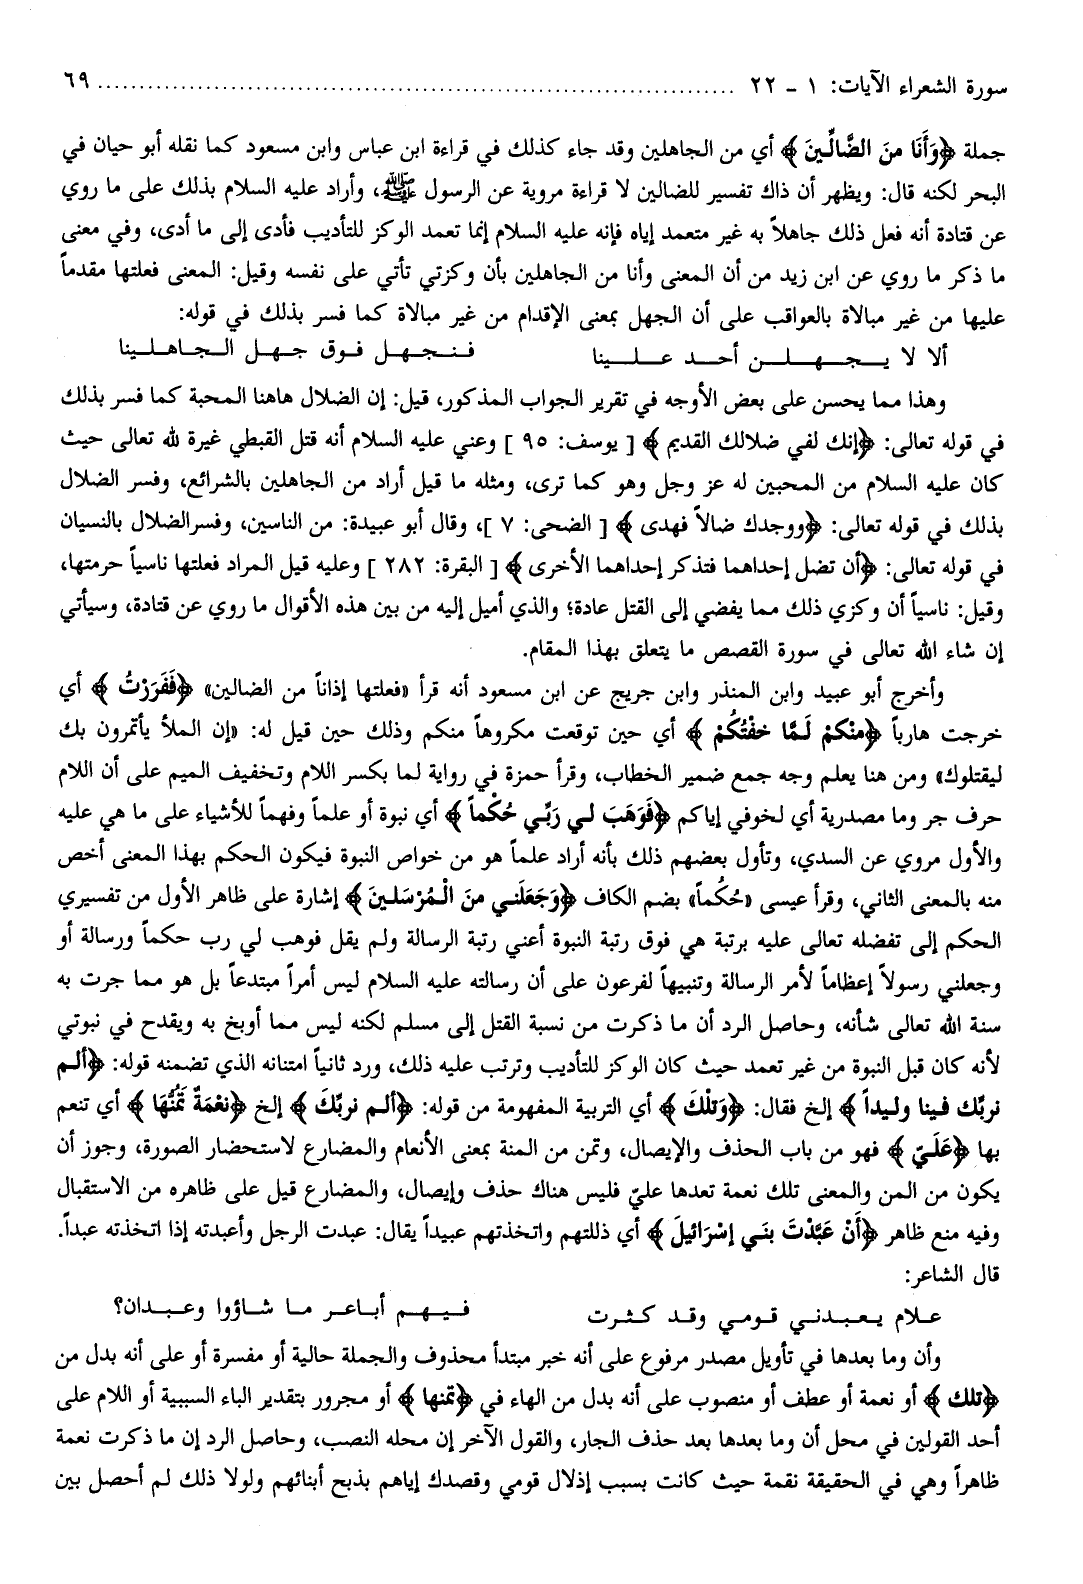 سورة الشعراء الآيات: ١ - ٢٢ ........................................ ٦٩
جملة ﴿وَأَنَا منَ الضَّالِّينَ﴾ أي من الجاهلين وقد جاء كذلك في قراءة ابن عباس وابن مسعود كما نقله أبو حيان في
البحر لكنه قال: ويظهر أن ذاك تفسير للضالين لا قراءة مروية عن الرسول ﷺ، وأراد عليه السلام بذلك على ما روي
عن قتادة أنه فعل ذلك جاهلاً به غير متعمد إياه فإنه عليه السلام إنما تعمد الوكز للتأديب فأدى إلى ما أدى، وفي معنى
ما ذكر ما روي عن ابن زيد من أن المعنى وأنا من الجاهلين بأن وكزتي تأتي على نفسه وقيل: المعنى فعلتها مقدماً
عليها من غير مبالاة بالعواقب على أن الجهل بمعنى الإقدام من غير مبالاة كما فسر بذلك في قوله:
ألا لا يجهلن أحد علينا فنجهل فوق جهل الجاهلينا
وهذا مما يحسن على بعض الأوجه في تقرير الجواب المذكور، قيل: إن الضلال هاهنا المحبة كما فسر بذلك
في قوله تعالى: ﴿إنك لفي ضلالك القديم﴾ [ يوسف: ٩٥ ] وعني عليه السلام أنه قتل القبطي غيرة لله تعالى حيث
كان عليه السلام من المحبين له عز وجل وهو كما ترى، ومثله ما قيل أراد من الجاهلين بالشرائع، وفسر الضلال
بذلك في قوله تعالى: ﴿ووجدك ضالاً فهدى﴾ [ الضحى: ٧ ]، وقال أبو عبيدة: من الناسين، وفسرالضلال بالنسيان
في قوله تعالى: ﴿أن تضل إحداهما فتذكر إحداهما الأخرى﴾ [ البقرة: ٢٨٢ ] وعليه قيل المراد فعلتها ناسياً حرمتها،
وقيل: ناسياً أن وكزي ذلك مما يفضي إلى القتل عادة؛ والذي أميل إليه من بين هذه الأقوال ما روي عن قتادة، وسيأتي
إن شاء الله تعالى في سورة القصص ما يتعلق بهذا المقام.
وأخرج أبو عبيد وابن المنذر وابن جريج عن ابن مسعود أنه قرأ «فعلتها إذاناً من الضالين» ﴿فَفَرَرْتُ﴾ أي
خرجت هارباً ﴿منْكمْ لَمَّا خفْتُكُمْ﴾ أي حين توقعت مكروهاً منكم وذلك حين قيل له: «إن الملأ يأتمرون بك
ليقتلوك» ومن هنا يعلم وجه جمع ضمير الخطاب، وقرأ حمزة في رواية لما بكسر اللام وتخفيف الميم على أن اللام
حرف جر وما مصدرية أي لخوفي إياكم ﴿فَوَهَبَ لي رَبِّي حُكْماً﴾ أي نبوة أو علماً وفهماً للأشياء على ما هي عليه
والأول مروي عن السدي، وتأول بعضهم ذلك بأنه أراد علماً هو من خواص النبوة فيكون الحكم بهذا المعنى أخص
منه بالمعنى الثاني، وقرأ عيسى «حُكُماً» بضم الكاف ﴿وَجَعَلَني منَ الْمُرْسَلينَ﴾ إشارة على ظاهر الأول من تفسيري
الحكم إلى تفضله تعالى عليه برتبة هي فوق رتبة النبوة أعني رتبة الرسالة ولم يقل فوهب لي رب حكماً ورسالة أو
وجعلني رسولاً إعظاماً لأمر الرسالة وتنبيهاً لفرعون على أن رسالته عليه السلام ليس أمراً مبتدعاً بل هو مما جرت به
سنة الله تعالى شأنه، وحاصل الرد أن ما ذكرت من نسبة القتل إلى مسلم لكنه ليس مما أوبخ به ويقدح في نبوتي
لأنه كان قبل النبوة من غير تعمد حيث كان الوكز للتأديب وترتب عليه ذلك، ورد ثانياً امتنانه الذي تضمنه قوله: ﴿ألم
نربِّك فينا وليداً﴾ إلخ فقال: ﴿وَتلْكَ﴾ أي التربية المفهومة من قوله: ﴿ألم نربِّكَ﴾ إلخ ﴿نعْمَةٌ تَمُنُّهَا﴾ أي تنعم
بها ﴿عَلَيَّ﴾ فهو من باب الحذف والإيصال، وتمن من المنة بمعنى الأنعام والمضارع لاستحضار الصورة، وجوز أن
يكون من المن والمعنى تلك نعمة تعدها عليّ فليس هناك حذف وإيصال، والمضارع قيل على ظاهره من الاستقبال
وفيه منع ظاهر ﴿أَنْ عَبَّدْتَ بنَي إسْرَائيلَ﴾ أي ذللتهم واتخذتهم عبيداً يقال: عبدت الرجل وأعبدته إذا اتخذته عبداً.
قال الشاعر:
علام يعبدني قومي وقد كثرت فيهم أباعر ما شاؤوا وعبدان؟
وأن وما بعدها في تأويل مصدر مرفوع على أنه خبر مبتدأ محذوف والجملة حالية أو مفسرة أو على أنه بدل من
﴿تلك﴾ أو نعمة أو عطف أو منصوب على أنه بدل من الهاء في ﴿تمنها﴾ أو مجرور بتقدير الباء السببية أو اللام على
أحد القولين في محل أن وما بعدها بعد حذف الجار، والقول الآخر إن محله النصب، وحاصل الرد إن ما ذكرت نعمة
ظاهراً وهي في الحقيقة نقمة حيث كانت بسبب إذلال قومي وقصدك إياهم بذبح أبنائهم ولولا ذلك لم أحصل بين